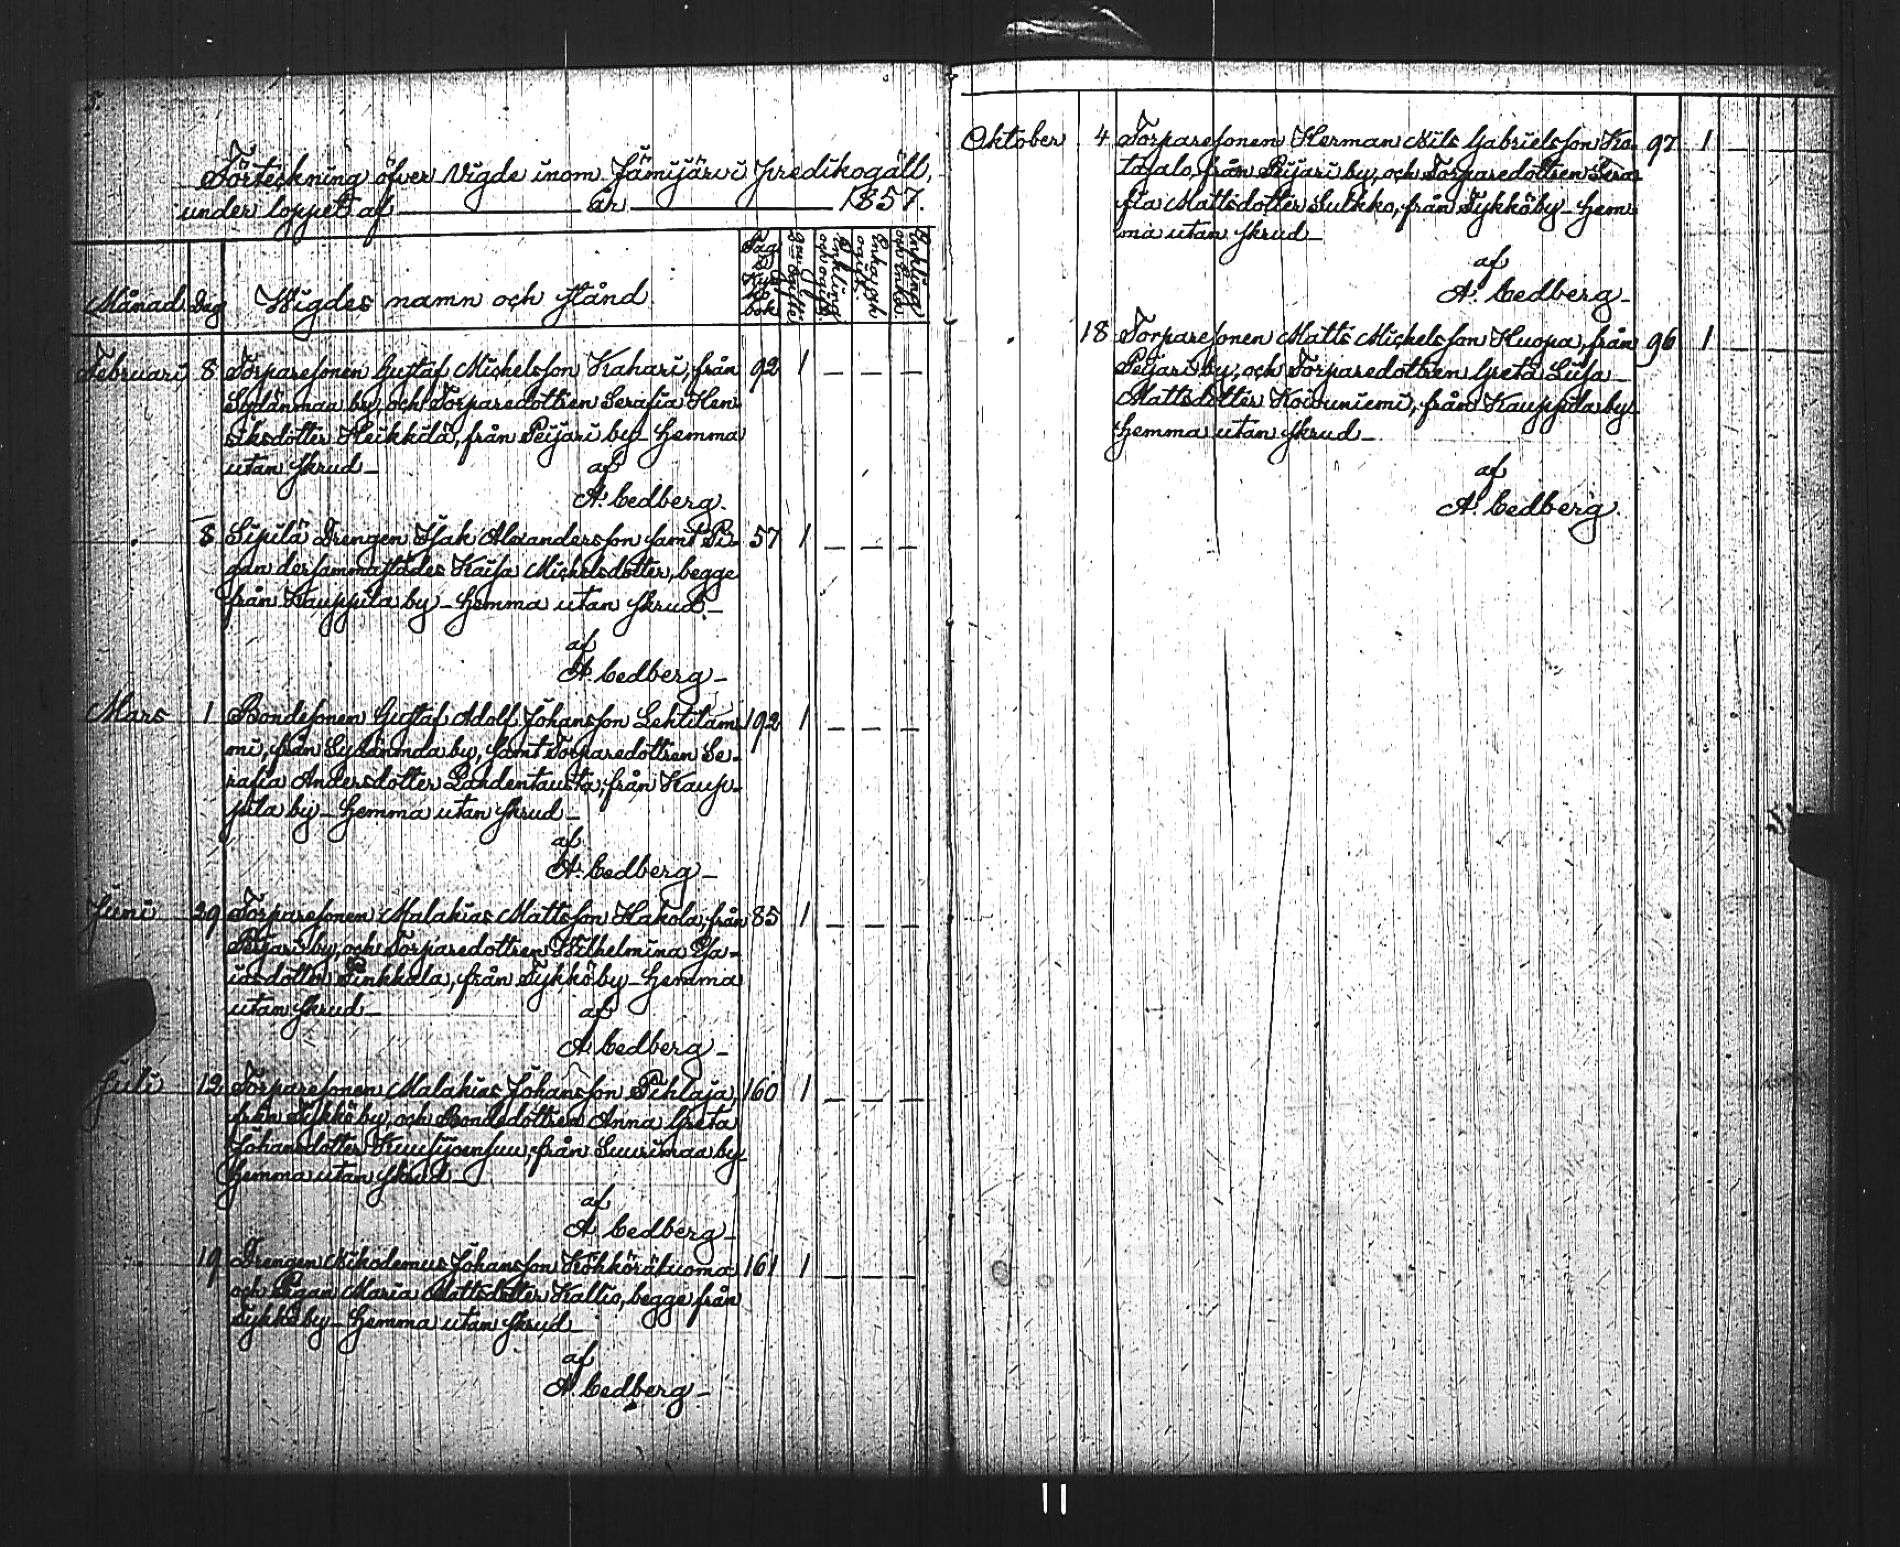 Förteckning öfver Vigde inom Jämijärvi Predikogäll,
under loppet af ______ år ______ 1857.
Månad. Dag Wigdes namn och stånd
Februari 8 Torparesonen Gustaf Michelsson Kahari, från 92 1 — — —
Sydänmaa by, och Torparedottren Serafia Hen-
riksdotter Heikkilä, från Peijari by – hemma
utan skrud –
af
A. Cedberg.
8 Sipilä Drengen Isak Alexandersson samt Pi- 57 1 — — —
gan dersammastädes Kaisa Michelsdotter, begge
från Kauppila by – hemma utan skrud –
af
A. Cedberg –
Mars 1 Bondesonen Gustaf Adolf Johansson Lehtilam- 192 1 — — —
mi, från Sydänmaa by, samt Torparedottren Se-
rafia Andersdotter Landentausta, från Kaup-
pila by – hemma utan skrud –
af
A. Cedberg –
Juni 29 Torparesonen Malakias Mattsson Hakola, från 85 1 — — —
Peijari by, och Torparedottren Wilhelmina Esa-
iasdotter Pinkkala, från Tykkö by – hemma
utan skrud –
af
A. Cedberg –
Juli 12 Torparesonen Malakias Johansson Pihlaja, 160 1 — — —
från Tykkö by, och Bondedottren Anna Greta
Johansdotter Kuusijoensuu, från Suurimaa by
hemma utan skrud –
af
A. Cedberg –
19 Drengen Nikodemus JohanssonKöhkörätuoma 161 1 — — —
och Pigan Maria Mattsdotter Kallio, begge från
Tykkö by – hemma utan skrud –
af
A. Cedberg –
Oktober 4 Torparesonen Herman Nils Gabrielsson Ko- 97 1
tasalo, från Peijari by, och Torparedottren Sera-
fia Mattsdotter Sulkko, från Tykkö by – hem-
ma utan skrud –
af
A. Cedberg –
18 Torparesonen Matts Michelsson Huopa, från 96 1
Peijari by, och Torparedottren Greta Lisa
Mattsdotter Koivuniemi, från Kauppila by
hemma utan skrud –
af
A. Cedberg.
11